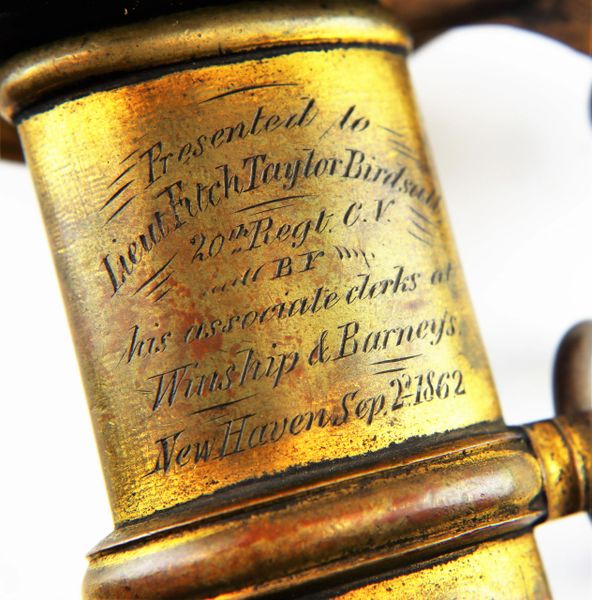 Presented to
Lieut Fitch Taylor Birdsall
20th Regt. C. V.
BY
his associate clerks at
Winship & Barney's
New Haven Sep. 22. 1862